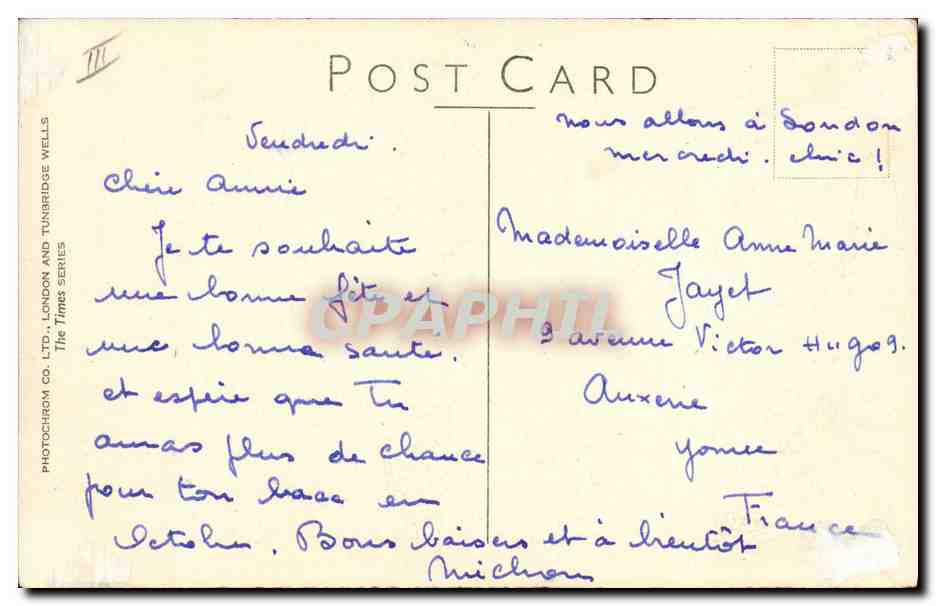 III
POST CARD
PHOTOCHROM CO. LTD., LONDON AND TUNBRIDGE WELLS
The Times SERIES
Vendredi.
Chère Annie
Je te souhaite
une bonne fête et
une bonne santé.
et espère que Tu
auras plus de chance
pour ton bacc en
Octobre. Bons baisers et à bientôt
Michou
nous allons à London
mercredi. chic !
Mademoiselle Anne Marie
Jayet
9 avenue Victor Hugo 9.
Auxerre
Yonne
France
CPAPHIL